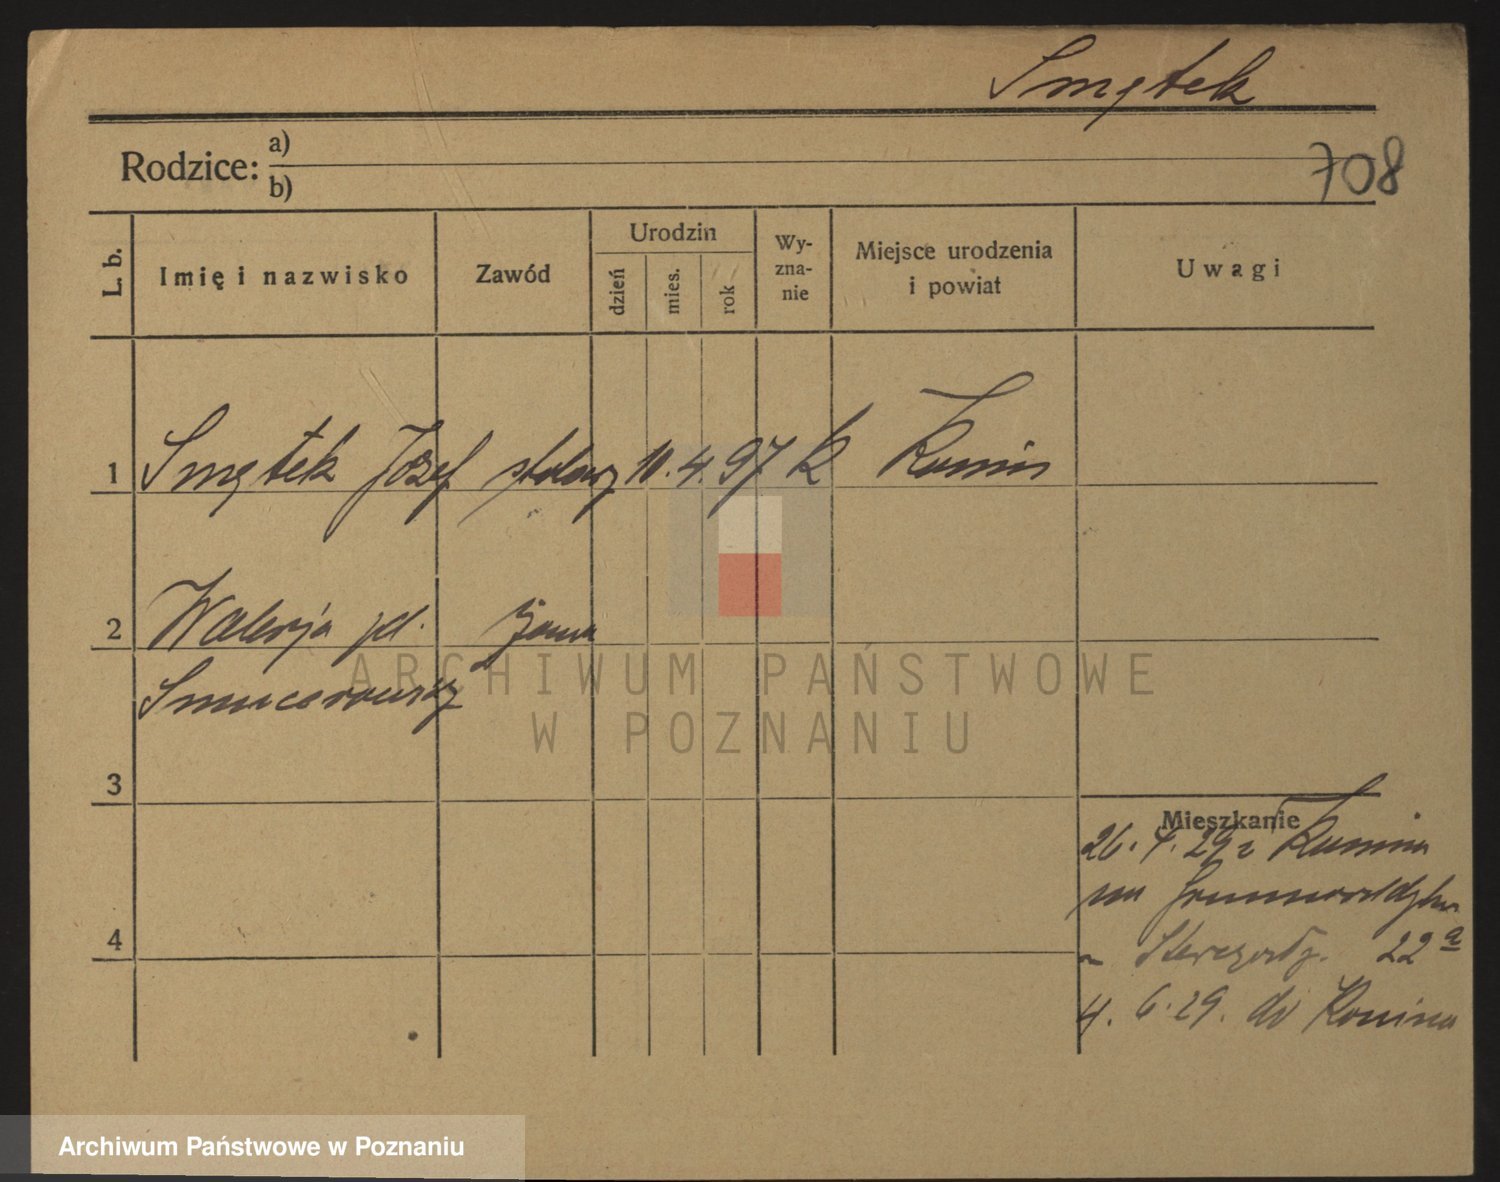 Smętek
708
Rodzice: a)
b)
L. b. Imię i nazwisko Zawód Urodzin dzień mies. rok Wy-zna-nie Miejsce urodzenia i powiat Uwagi
1 Smętek Józef stolarz 10. 4. 97 K Konin
2 Walerja żona
3
Mieszkanie
26. 4. 29 z Konina
na
4 22a
4. 6. 29. do Konina
ARCHIWUM PAŃSTWOWE
W POZNANIU
Archiwum Państwowe w Poznaniu